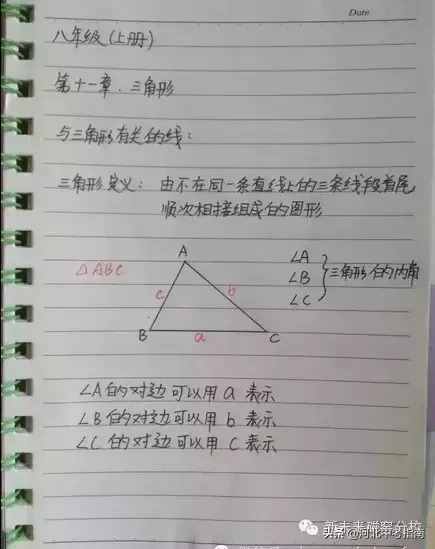 Date
八年级(上册)
第十一章. 三角形
与三角形有关的线:
三角形定义: 由不在同一条直线上的三条线段首尾
顺次相接组成的图形
△ABC
A
c
b
B
a
C
∠A
∠B
∠C
三角形的内角
∠A的对边可以用 a 表示
∠B的对边可以用 b 表示
∠C的对边可以用 c 表示
头条@河北中考指南